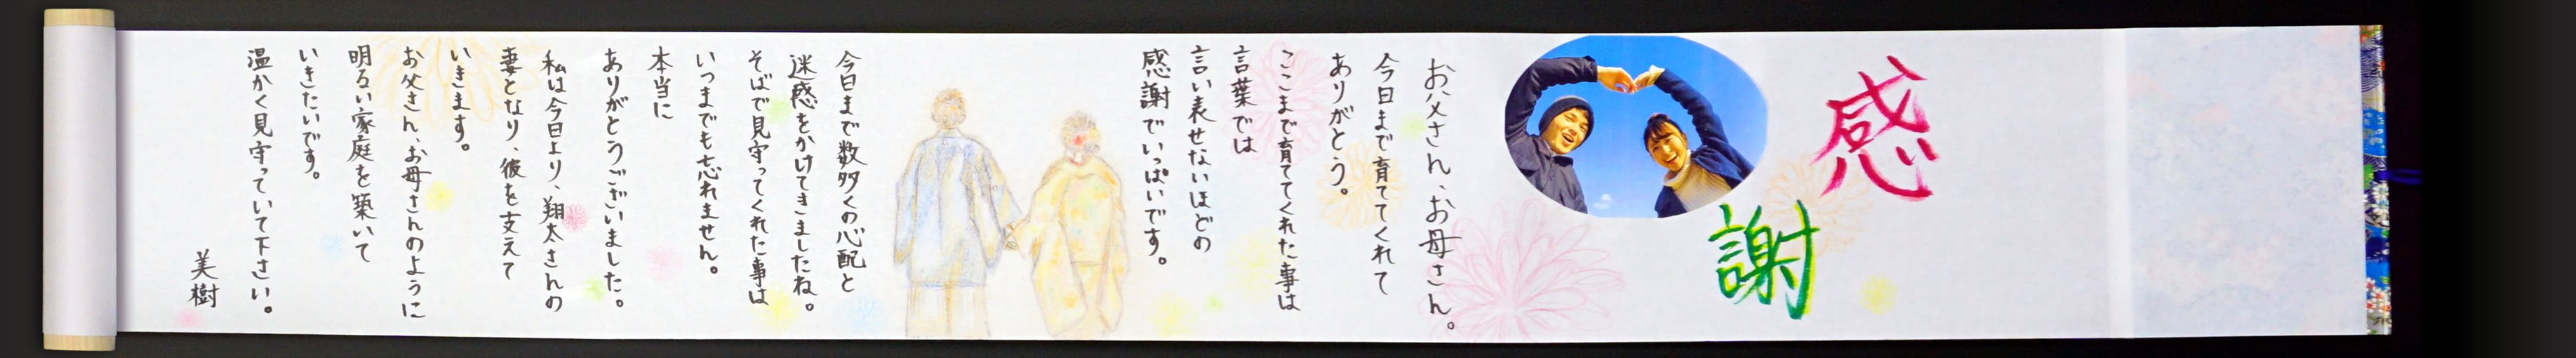 感謝
お父さん、お母さん。
今日まで育ててくれて
ありがとう。
ここまで育ててくれた事は
言葉では
言い表せないほどの
感謝でいっぱいです。
今日まで数多くの心配と
迷惑をかけてきましたね。
そばで見守ってくれた事は
いつまでも忘れません。
本当に
ありがとうございました。
私は今日より、翔太さんの
妻となり、彼を支えて
いきます。
お父さん、お母さんのように
明るい家庭を築いて
いきたいです。
温かく見守っていて下さい。
美樹